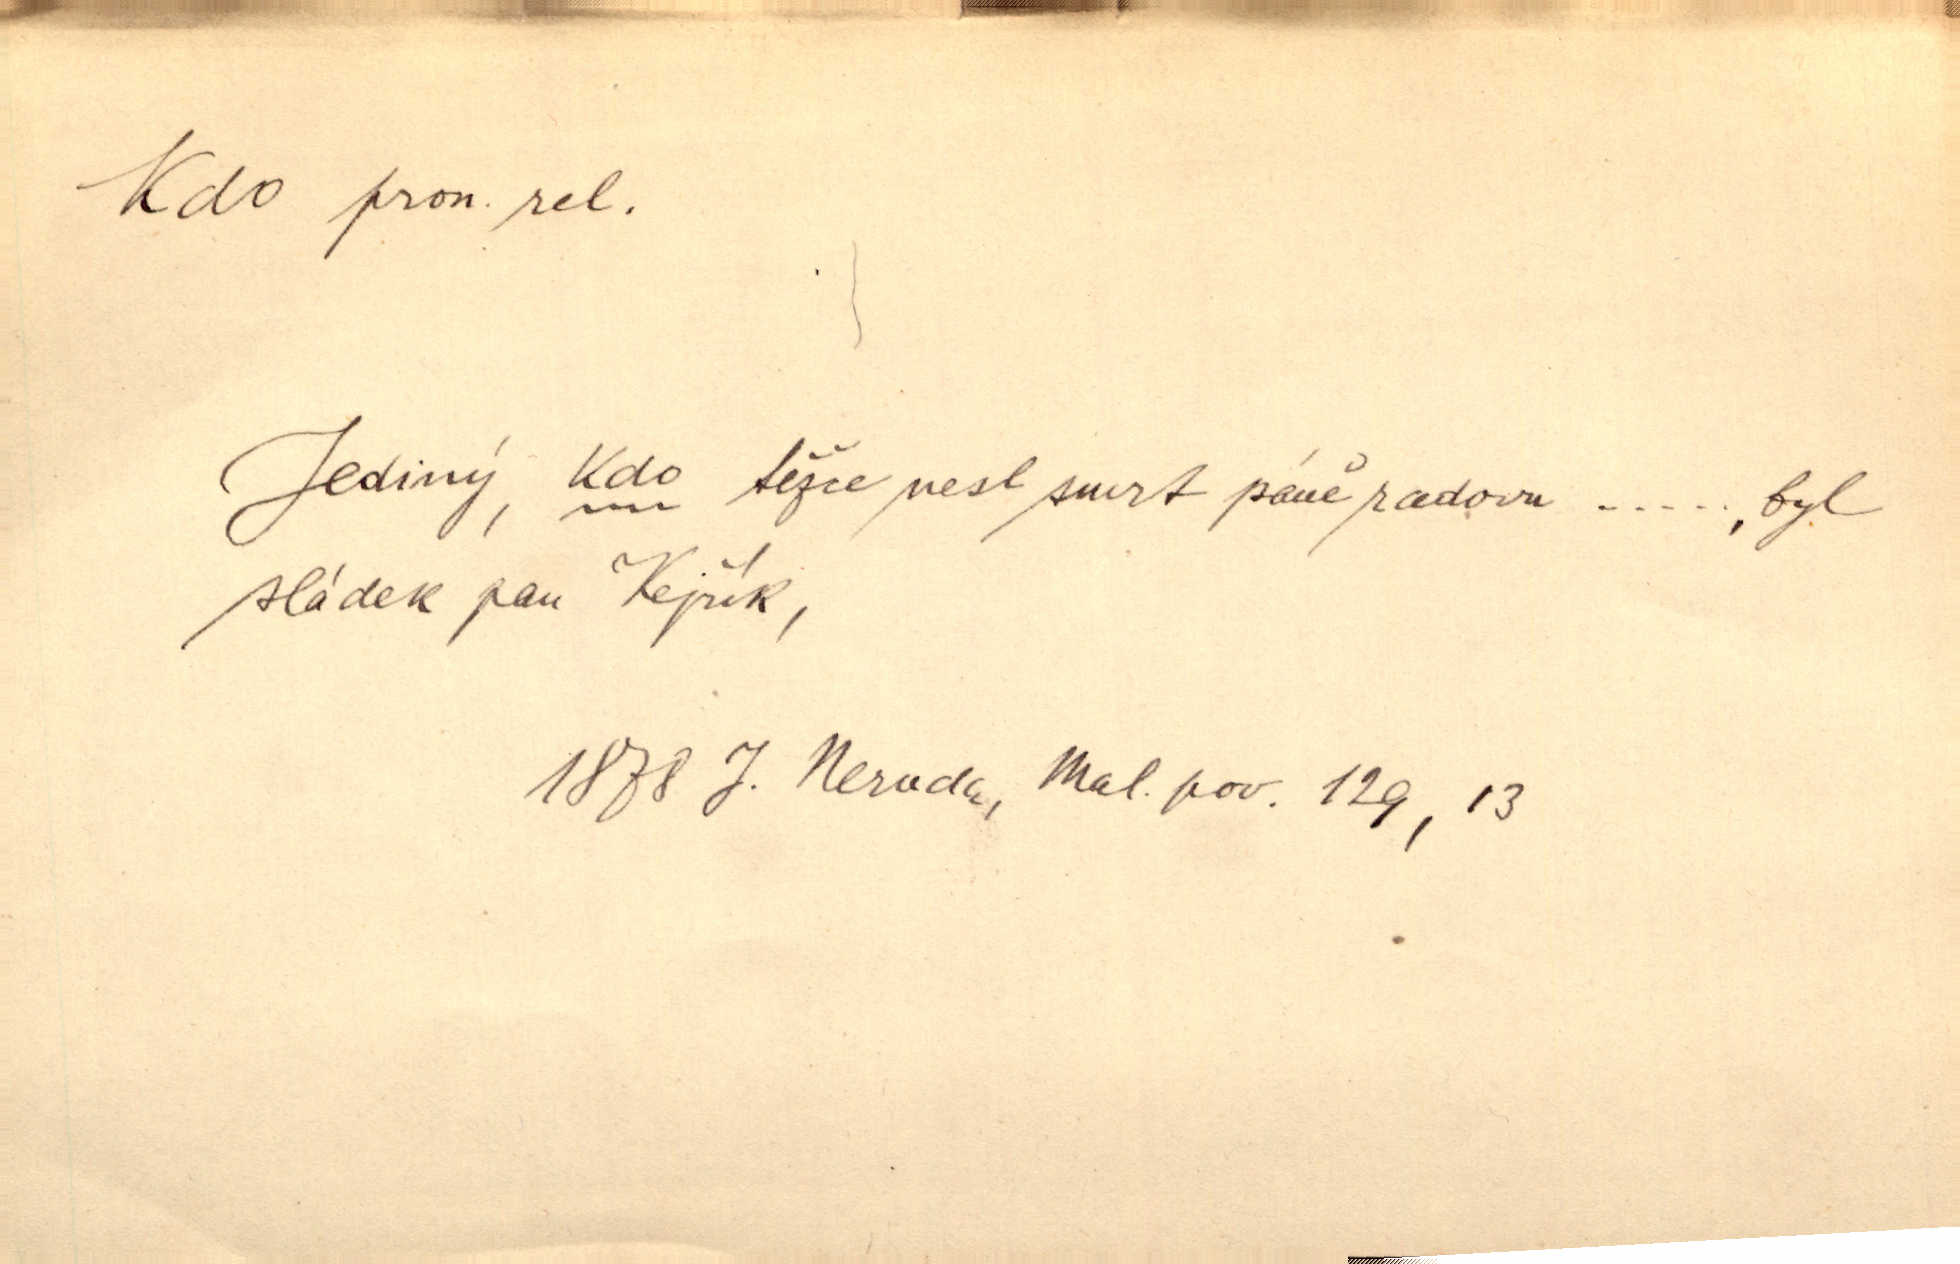 Kdo pron. rel.
Jediný, kdo těžce nesl smrt páně radovu ....., byl
sládek pan Kejřík,
1878 J. Neruda, Mal. pov. 129, 13